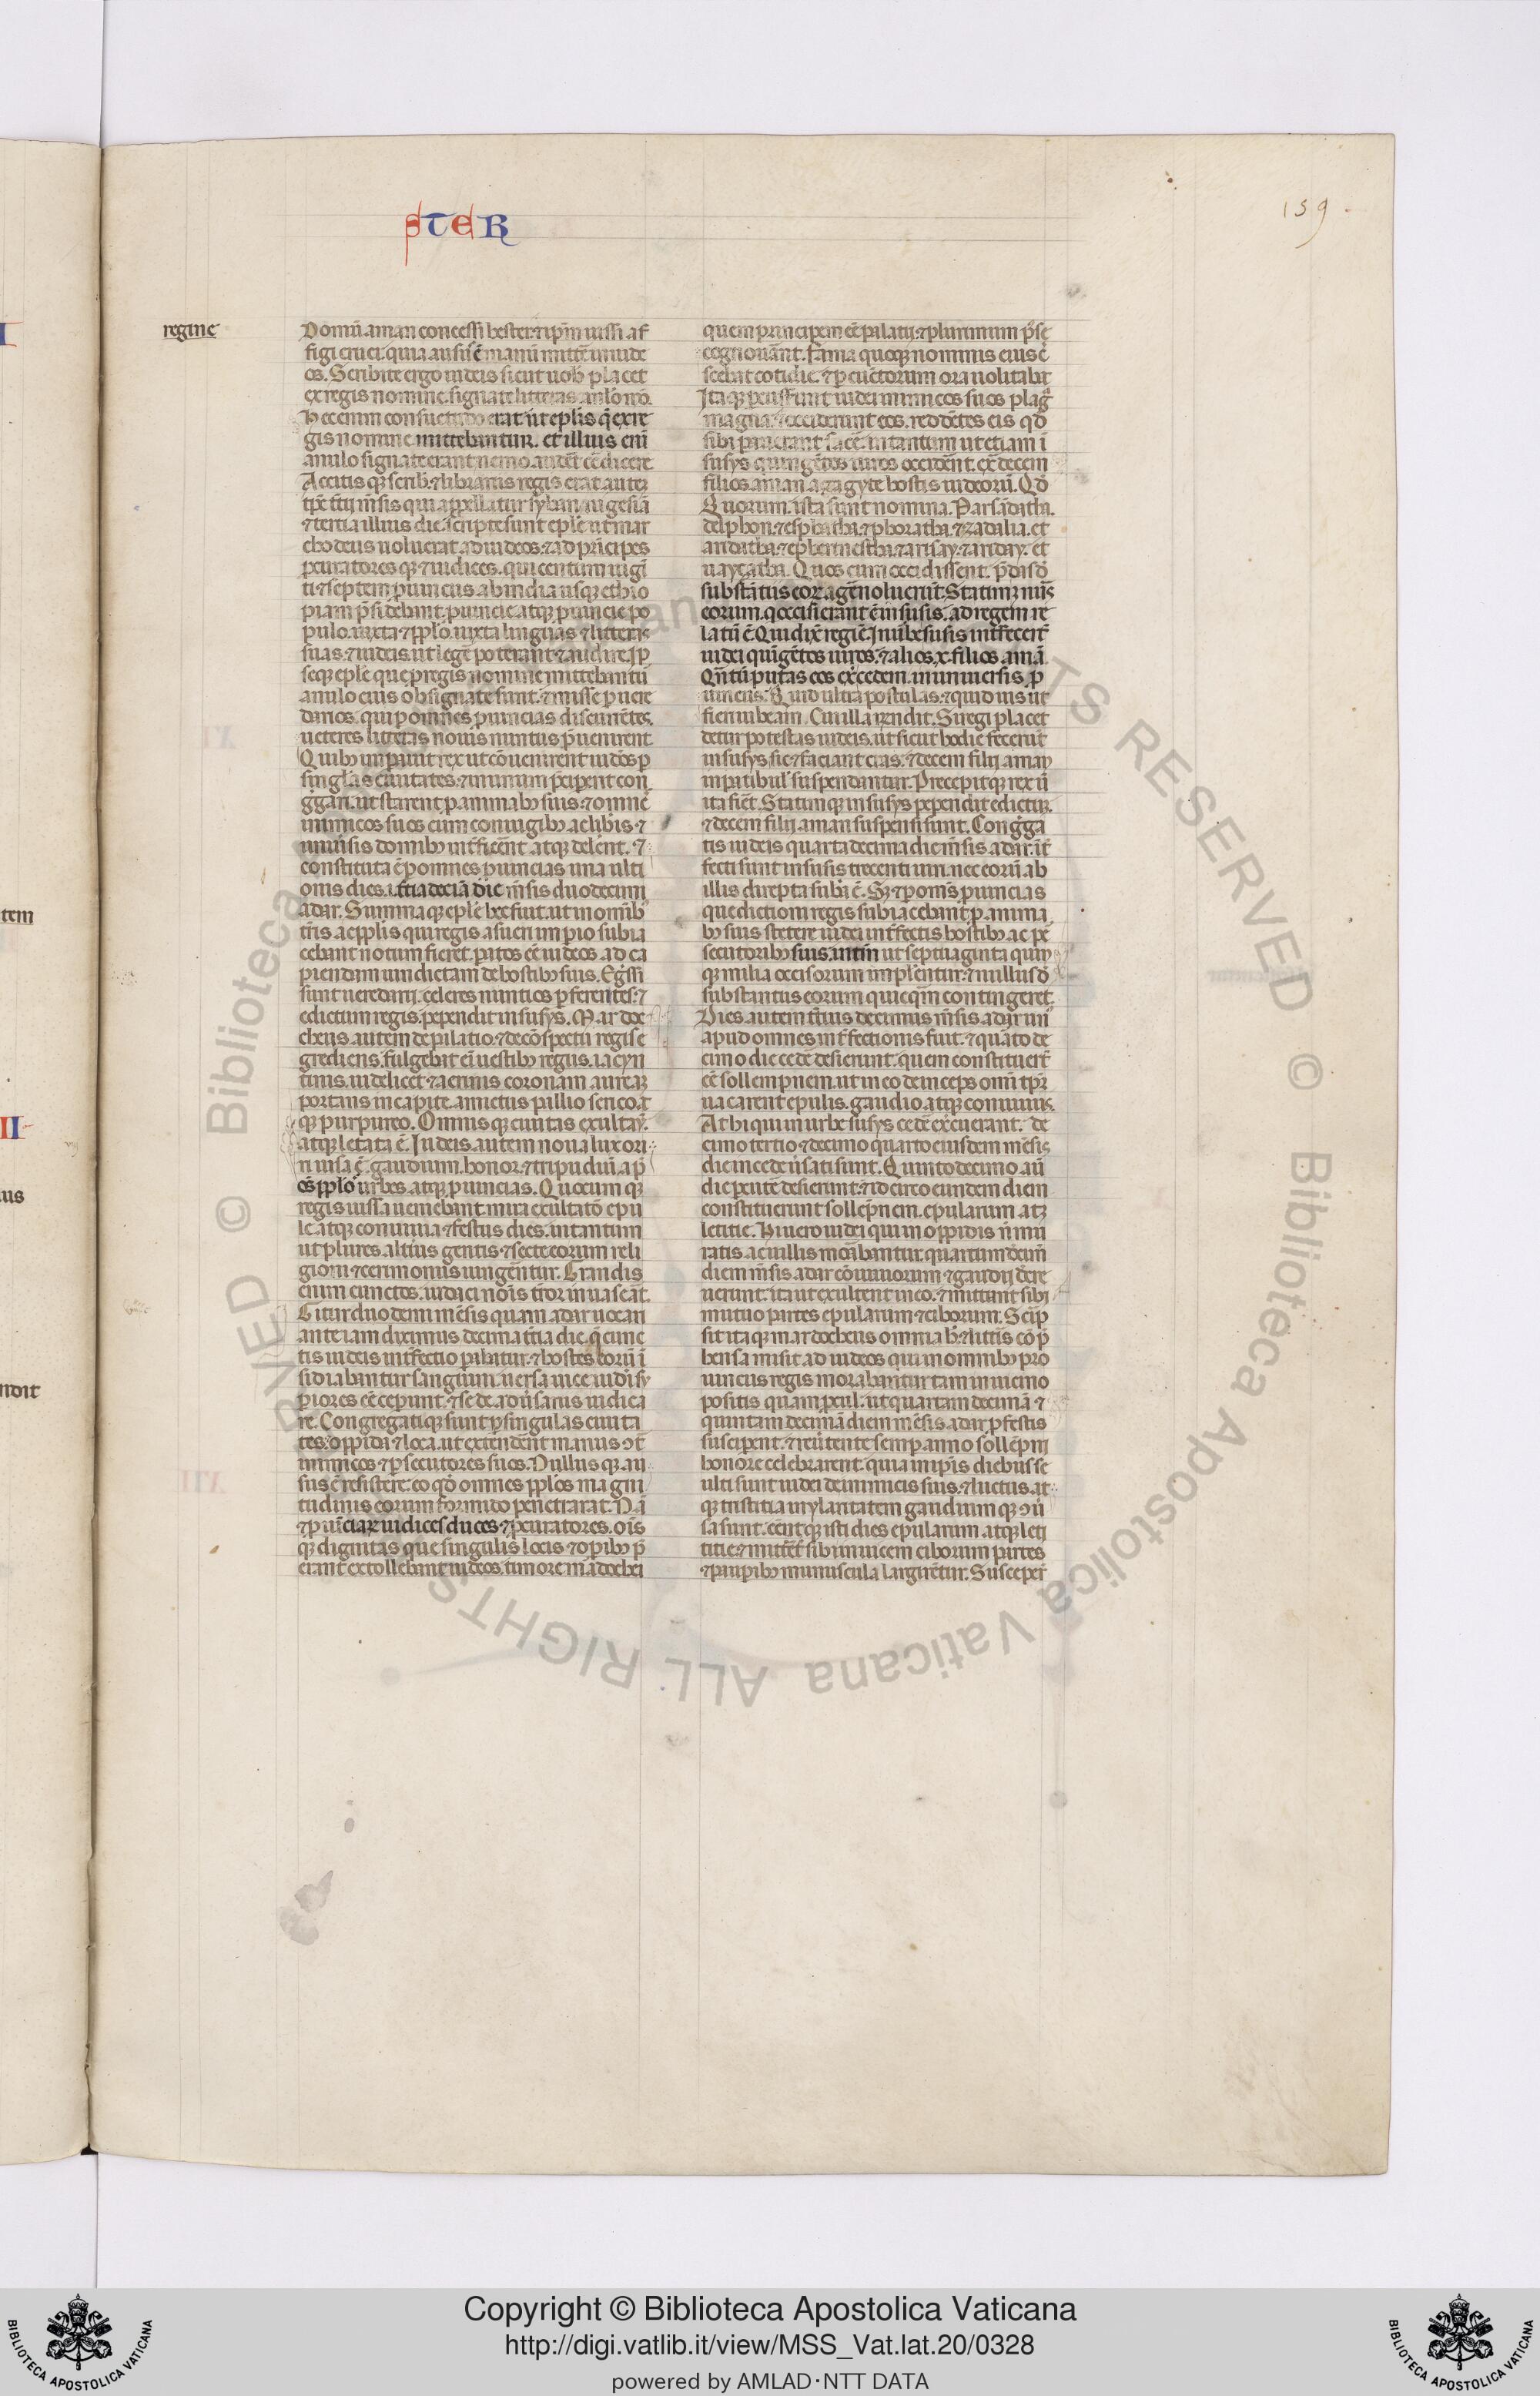 STER
159
regine
Domū aman concessi hester. ⁊ ip̄m iussi af
figi cruci. quia ausus ē manū mittē in iude
os. Scribite ergo iudeis sicut uob placet
ex regis nomine. signate litteras anlo mō.
Hec enim consuetudo erat. ut eplis q̄ ex re
gis nomine mittebantur. et illius erū
anulo signate erant nemo auderet cōdicere
Accitisq; scribis. ⁊ librariis regis erat autē
tp̄r tertii m̄sis qui appellatur syban. uigesīa
⁊ tertia illius die. scripte sunt eple ut mar
docheus uoluerat ad iudeos. ⁊ ad principes
procuratores q; ⁊ iudices. qui centum uigī
ti ⁊ septem prouinciis ab india usq; ethio
piam p̄sidebant. prouincie atq; prouincie po
pulo. iuxta ⁊ pplo. iuxta linguas ⁊ litteras
suas. ⁊ iudeis. ut legē poterant ⁊ audire. Ip̄
seq; eple que pregis nomine mittebantur
anulo eius obsignate sunt. ⁊ misse p uere
darios. qui p omnes prouincias discurrētes.
ueteres litteras nouis nuntiis p̄uenirent.
Quibꝰ imperauit rex ut cōuenirent iudeos p
singlas ciuitates. ⁊ in unum p̄ciperent con
ggari. ut starent p animabꝰ suis. ⁊ omnē
inimicos suos cum coniugibꝰ ac libis. ⁊
uniuersis domibꝰ interficerent. atq; delerent. ⁊
constituta ē p omnes prouincias una ulti
onis dies. i. tertia decia die m̄sis duodecimi
adar. Summaq; eple hec fuit. ut in omnibꝰ
tr̄is ac pplis qui regis asueri imperio subia
cebant notum fieret. patos cē iudeos ad ca
piendam uindictam de hostibꝰ suis. Egressi
sunt ueredarii. celeres nuntios pferentes. ⁊
edictum regis. pependit in susys. Mardoc
cheus autem de palatio. ⁊ de cōspectu regis e
grediens. fulgebat cū uestibꝰ regiis. iacyn
tinis. uidelicet ⁊ aerinis coronam auream
portans in capite. amictus pallio serico. at
q; purpureo. Omnisq; ciuitas exultauit.
atq; letata ē. Iudeis autem noua lux ori
ri uisa ē. gaudium. honor. ⁊ tripudiū. ap̄
oēs pplos urbes. atq; prouincias. Quocumq;
regis iussa ueniebant. mira exultatō. epu
le atq; conuiuia. ⁊ festus dies. in tantum
ut plures alterius gentis. ⁊ secte eorum reli
gioni ⁊ cerimoniis iungerentur. Grandis
enim cunctos. iudaici nōis terror inuaserat.
Igitur duodecimi mēsis quam adar uocari
ante iam diximus decima tertia die. q̄n cunc
tis iudeis interfectio pabatur. ⁊ hostes eorū ī
sidiabantur sanguini. uersa uice iudei su
periores cē ceperunt. ⁊ se de aduersariis uindica
re. Congregatiq; sunt p singulas ciuita
tes. oppida ⁊ loca. ut extenderent manus ↄtra
inimicos. ⁊ psecutores suos. Nullusq; au
sus ē resistere. eo qd̄ omnes pplos magni
tudinis eorum formido penetrarat. Nā
⁊ prouiciar̄ iudices duces. ⁊ procuratores. oīs
q; dignitas que singulis locis. ⁊ opibꝰ p̄
erant. extollebant iudeos. timore mardochei
quem principem cē palatii. ⁊ plurimum posse
cognouerant. Fama quoq; nominis eius cre
scebat cotidie. ⁊ p cūctorum ora uolitabat
Itaq; percusserunt iudei inimicos suos plaga
magna. ⁊ occiderunt eos. reddētes eis qd̄
sibi parauerant facē. in tantum ut etiam ī
susys quingētos uiros occiderent. ex̄ decem
filios aman agagyte hostis iudeorū. Qd̄
Quorum. ista sunt nomina. Parsādatha.
delphon. ⁊ esphatha. ⁊ phoratha. ⁊ adalia. et
aridatha. ⁊ ephermestha. ⁊ arisay. ⁊ ariday. et
uayzatha. Quos cum occidissent. p̄das d̄
substātiis eor̄ agē noluerūt. Statimq; nūs
eorum. q occisi erant ē in susis. ad regem re
latū ē. Qui dix̄ regīe. In urbe susis interfecerūt
iudei quīgētos uiros. ⁊ alios. x. filios. amā.
Qn̄tū putas eos exc̄e cedem. in uniuersis. p
uinciis. Quid ultra postulas. ⁊ quid uis ut
fieri iubeam. Cui illa rn̄dit. Si regi placet
detur potestas iudeis. ut sicut hodie fecerūt
in susys. sic ⁊ faciant cras. ⁊ decem filii aman
in patibulis suspendantur. Precepitq; rex ut
ita fieret. Statimq; in susys pependit edictum.
⁊ decem filii aman suspensi sunt. Congga
tis iudeis quarta decima die m̄sis adar. int̄
fecti sunt in susis trecenti uiri. nec eorū ab
illis direpta suba ē. S; ⁊ p oms prouincias
que dictioni regis subiacebant. p anima
bꝰ suis stetere iudei. interfectis hostibꝰ ac pe
secutoribꝰ suis. in tm̄ ut septuaginta quin
q; milia occisorum implerentur. ⁊ nullus d̄
substantiis eorum quicq̄m contingeret.
Dies autem tertius decimus m̄sis adar un̄
apud omnes interfectionis fuit. ⁊ quarto de
cimo die cedē desierunt. quem constituerūt
cē sollempnem. ut in eo deinceps omī tpr̄
uacarent epulis. gaudio. atq; conuiuiis.
At hi qui in urbe susys cedē exercuerant. de
cimo tertio. ⁊ decimo quarto eiusdem mēsis
die in cede uersati sunt. Quinto decimo aūt
die percutē desierunt. ⁊ idcirco eundem diem
constituerunt sollēpnem. epularum atq;
letitie. Hi uero iudei qui in oppidis n̄ mu
ratis ac uillis morabantur. quartum decimū
diem m̄sis adar cōuiuiorum ⁊ gaudii decre
uerunt. ita ut exultent in eo. ⁊ mittant sibi
mutuo partes epularum ⁊ ciborum. Scrip
sit itaq; mardocheus omnia h̄. ⁊ litt̄is cōp̄
hensa misit ad iudeos qui in omnibꝰ pro
uinciis regis morabantur. tam in uicino
positis quam procul. ut quartam decimā ⁊
quintam decimā diem mēsis adar. p festis
susciperent. ⁊ reuertente semp anno sollēpni
honore celebrarent. quia in ip̄is diebus se
ulti sunt iudei de inimicis suis. ⁊ luctus. at
q; tristitia in ylaritatem gaudiumq; ↄuer
sa sunt. eentq; isti dies epularum. atq; leti
titie. ⁊ mitterēt sibi inuicem ciborum partes
⁊ pauperibꝰ munuscula largirētur. Suscepert̄
Copyright © Biblioteca Apostolica Vaticana
http://digi.vatlib.it/view/MSS_Vat.lat.20/0328
powered by AMLAD·NTT DATA